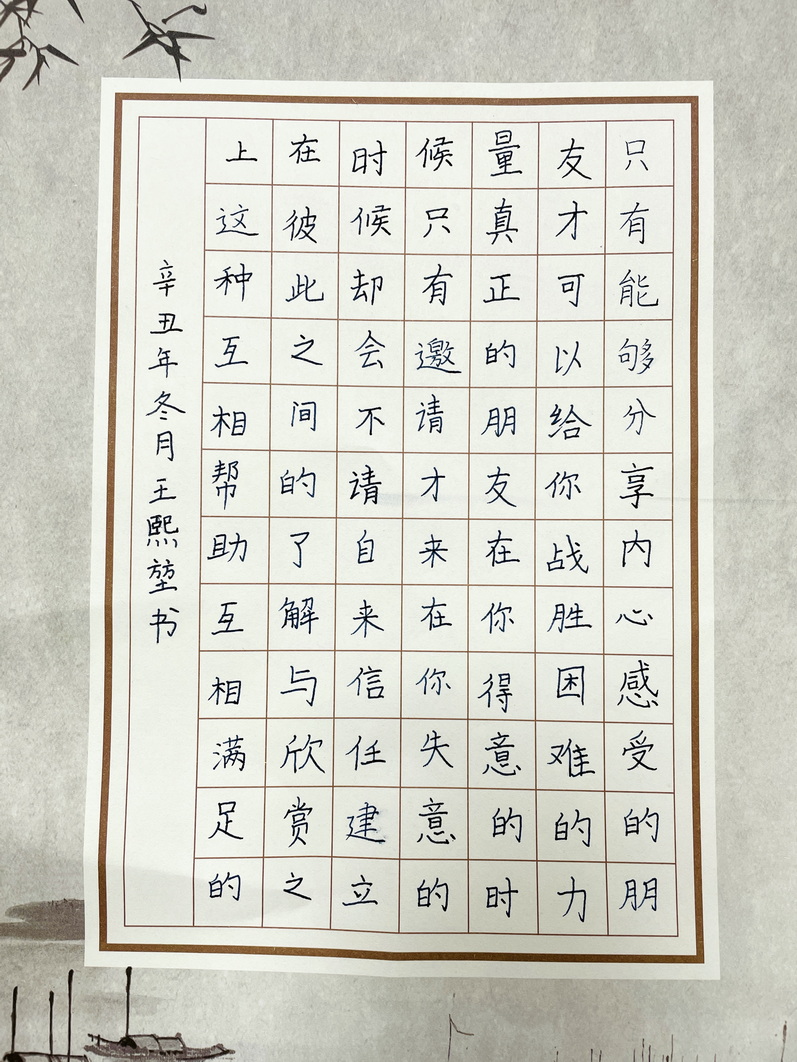 只有能够分享内心感受的朋
友才可以给你战胜困难的力
量真正的朋友在你得意的时
候只有邀请才来在你失意的
时候却会不请自来信任建立
在彼此之间的了解与欣赏之
上这种互相帮助互相满足的
辛丑年冬月王熙堃书